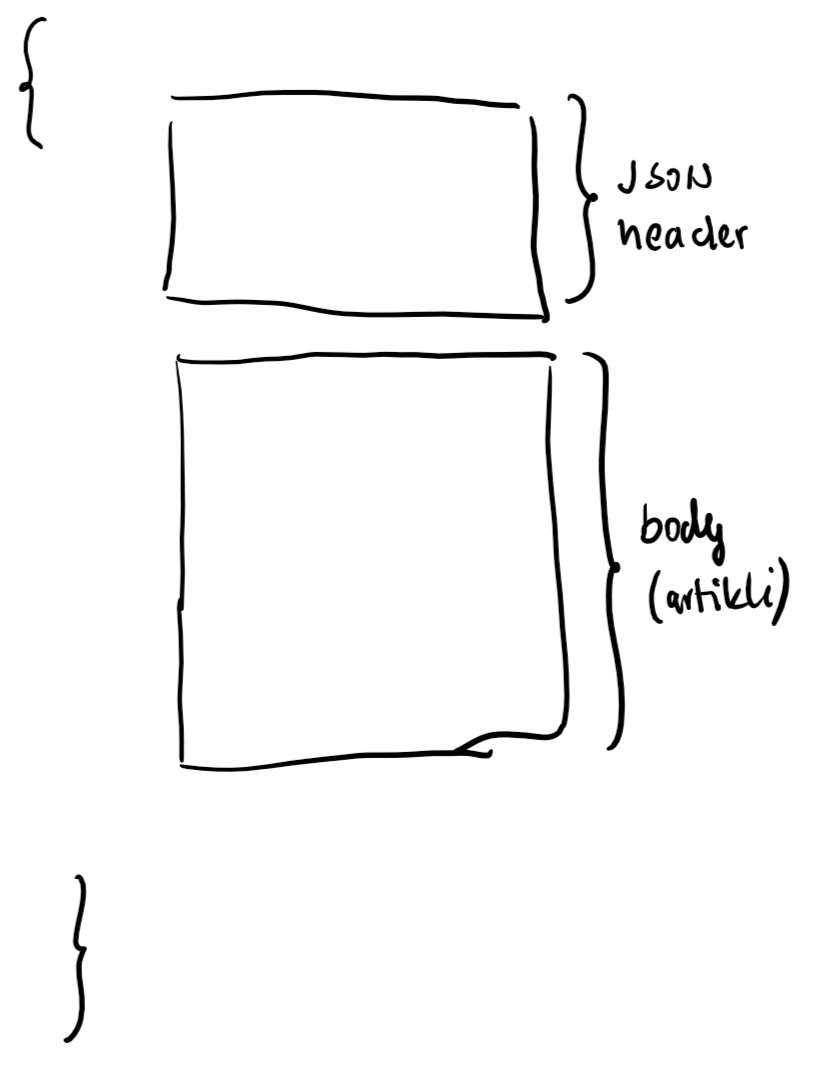 {
JSON
header
body
(artikli)
}